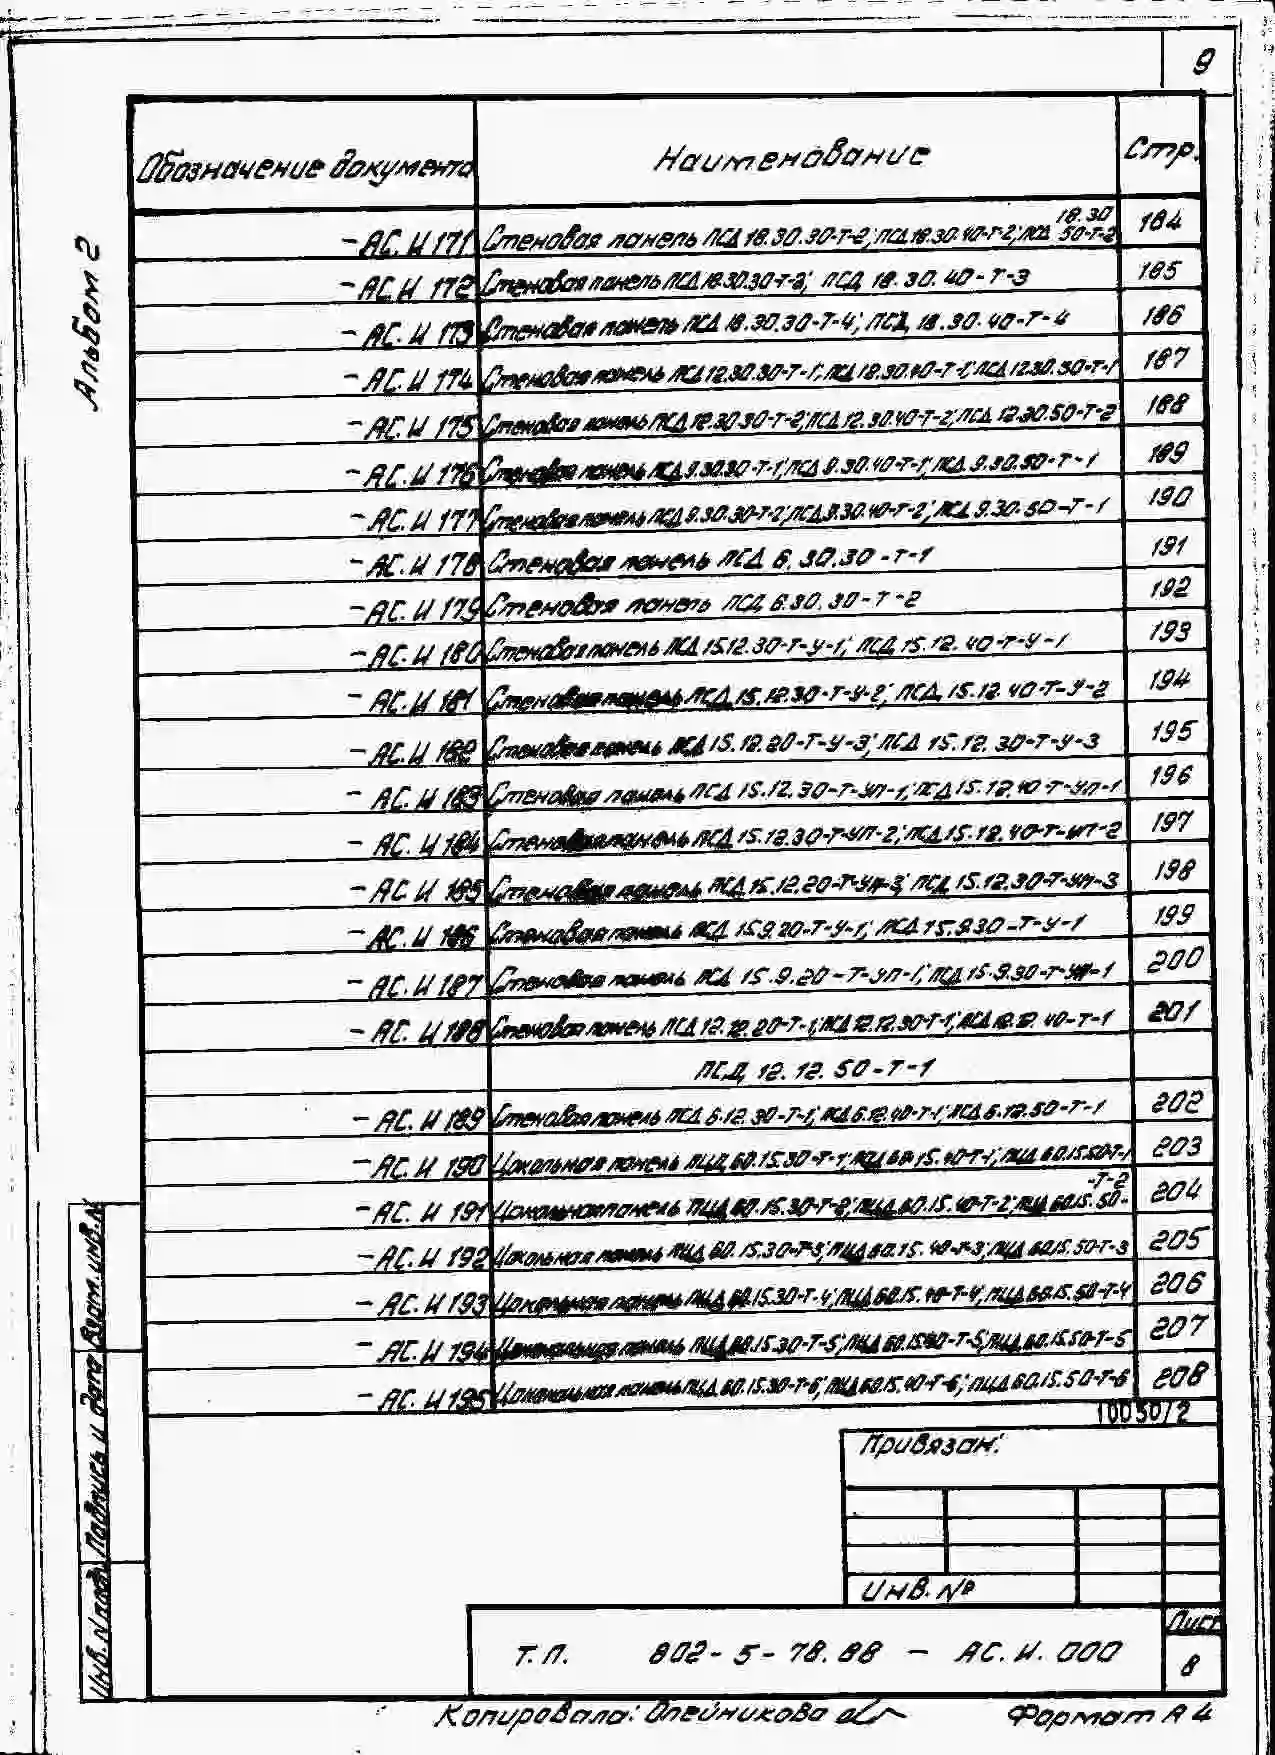 9
Альбом 2
Обозначение документа Наименование Стр.
18.30
-АС.И 171 Стеновая панель ПСД 18.30.30-Т-2; ПСД 18.30.40-Т-2; ПСД 50-Т-2 184
-АС.И 172 Стеновая панель ПСД 18.30.30-Т-3; ПСД 18.30.40-Т-3 185
-АС.И 173 Стеновая панель ПСД 18.30.30-Т-4; ПСД 18.30.40-Т-4 186
-АС.И 174 Стеновая панель ПСД 12.30.30-Т-1; ПСД 12.30.40-Т-1; ПСД 12.30.50-Т-1 187
-АС.И 175 Стеновая панель ПСД 12.30.30-Т-2; ПСД 12.30.40-Т-2; ПСД 12.30.50-Т-2 188
-АС.И 176 Стеновая панель ПСД 9.30.30-Т-1; ПСД 9.30.40-Т-1; ПСД 9.30.50-Т-1 189
-АС.И 177 Стеновая панель ПСД 9.30.30-Т-2; ПСД 9.30.40-Т-2; ПСД 9.30.50-Т-1 190
-АС.И 178 Стеновая панель ПСД 6.30.30-Т-1 191
-АС.И 179 Стеновая панель ПСД 6.30.30-Т-2 192
-АС.И 180 Стеновая панель ПСД 15.12.30-Т-У-1; ПСД 15.12.40-Т-У-1 193
-АС.И 181 Стеновая панель ПСД 15.12.30-Т-У-2; ПСД 15.12.40-Т-У-2 194
-АС.И 182 Стеновая панель ПСД 15.12.20-Т-У-3; ПСД 15.12.30-Т-У-3 195
-АС.И 183 Стеновая панель ПСД 15.12.30-Т-УП-1; ПСД 15.12.40-Т-УП-1 196
-АС.И 184 Стеновая панель ПСД 15.12.30-Т-УП-2; ПСД 15.12.40-Т-УП-2 197
-АС.И 185 Стеновая панель ПСД 15.12.20-Т-УП-3; ПСД 15.12.30-Т-УП-3 198
-АС.И 186 Стеновая панель ПСД 15.9.20-Т-У-1; ПСД 15.9.30-Т-У-1 199
-АС.И 187 Стеновая панель ПСД 15.9.20-Т-УП-1; ПСД 15.9.30-Т-УП-1 200
-АС.И 188 Стеновая панель ПСД 12.12.20-Т-1; ПСД 12.12.30-Т-1; ПСД 12.12.40-Т-1 201
ПСД 12.12.50-Т-1
-АС.И 189 Стеновая панель ПСД 6.12.30-Т-1; ПСД 6.12.40-Т-1; ПСД 6.12.50-Т-1 202
-АС.И 190 Цокольная панель ПЦД 60.15.30-Т-1; ПЦД 60.15.40-Т-1; ПЦД 60.15.50-Т-1 203
-Т-2
-АС.И 191 Цокольная панель ПЦД 60.15.30-Т-2; ПЦД 60.15.40-Т-2; ПЦД 60.15.50- 204
-АС.И 192 Цокольная панель ПЦД 60.15.30-Т-3; ПЦД 60.15.40-Т-3; ПЦД 60.15.50-Т-3 205
-АС.И 193 Цокольная панель ПЦД 60.15.30-Т-4; ПЦД 60.15.40-Т-4; ПЦД 60.15.50-Т-4 206
-АС.И 194 Цокольная панель ПЦД 60.15.30-Т-5; ПЦД 60.15.40-Т-5; ПЦД 60.15.50-Т-5 207
-АС.И 195 Цокольная панель ПЦД 60.15.30-Т-6; ПЦД 60.15.40-Т-6; ПЦД 60.15.50-Т-6 208
10030/2
Привязан:
Инв. №
Взам.инв.N
Подпись и дата
Инв. N подл.
Т.П. 802-5-78.88 - АС.И.000
Лист
8
Копировала: Олейникова
Формат А4